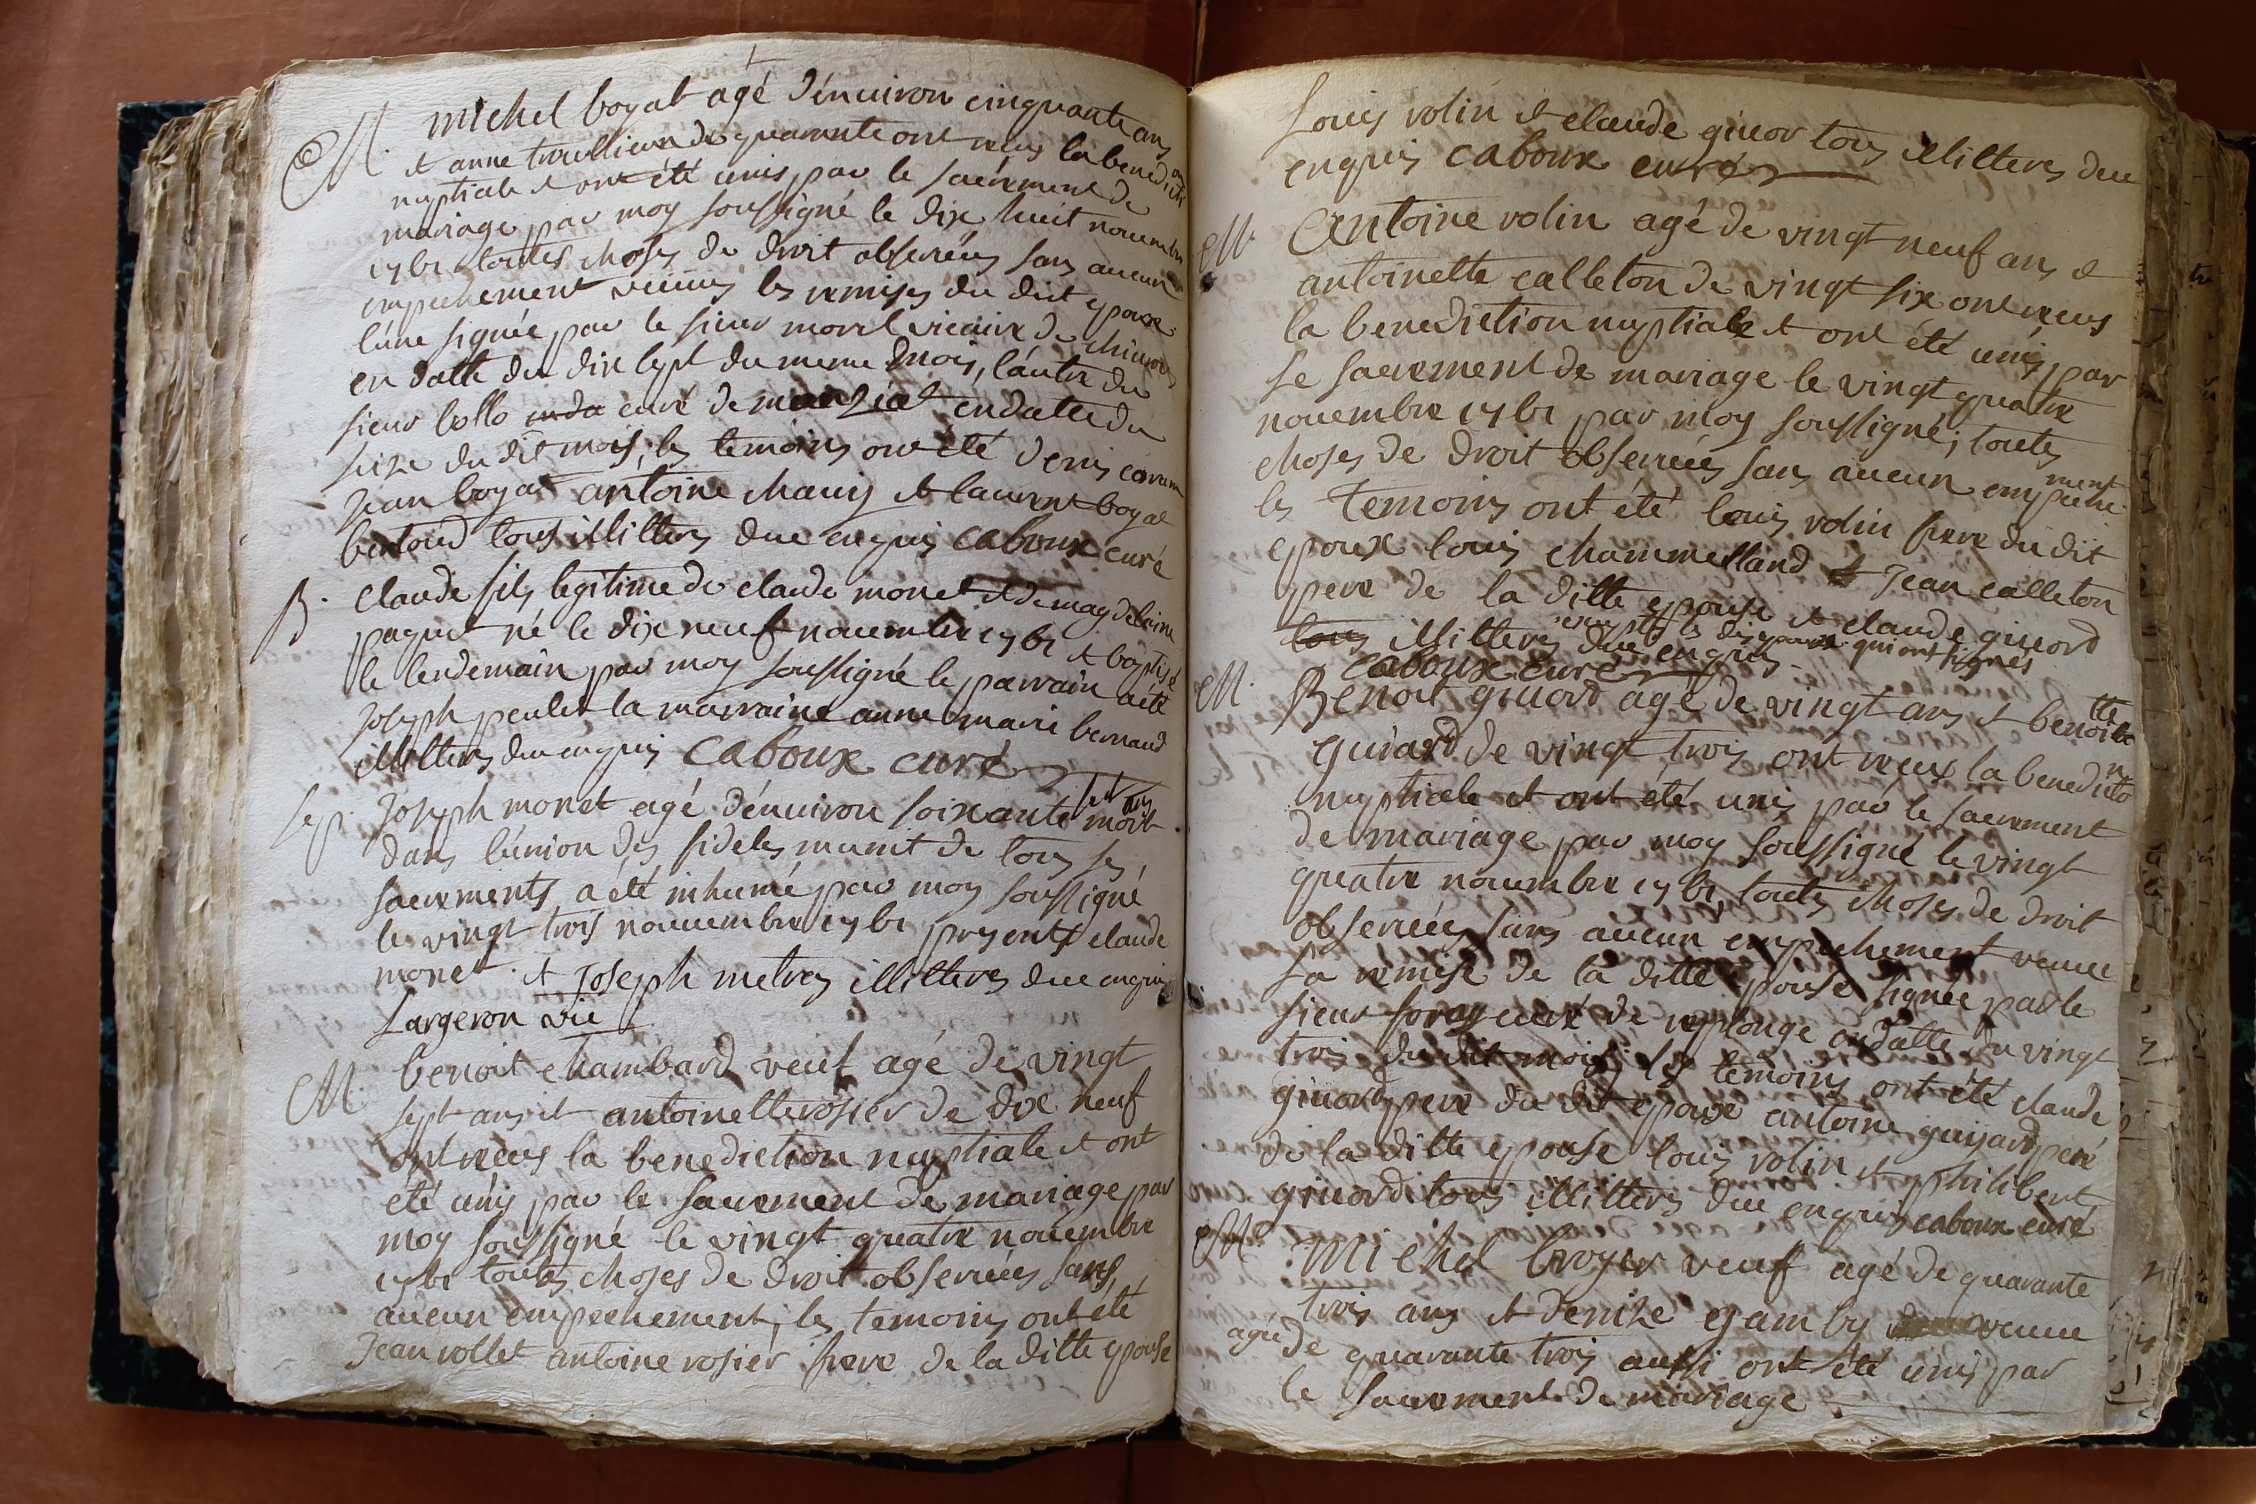 M. michel boyat agé d'énuiron cinquante ans
et anne trouillieux de quarante ont reçus la benedicti on
nuptiale et ont été unis par le sacrement de
mariage par moy soussigné le dix huit nouembre
1761 toutes choses de droit obseruées sans aucun
empechement les remises du dit epoux
l'une signée par le sieur morel vicaire de
en datte du dix sept du meme mois, l'autre du
sieur bollo curé de manziat en datte du
seize du dit mois, les temoins ont été denis
Jean boyat antoine chauy et laurent boyat
bertoud tous illitteres due enquis caboux curé
B. claude fils legitime de claude monet et de magdelaine
paquet né le dix neuf nouembre 1761 et baptisé
le lendemain par moy soussigné le parrain a été
Joseph peulet la marraine anne marie bernaud
illitteres due enquis caboux curé
sep. Joseph monet agé d'énuiron soixante et ans mort
dans l'union des fideles munit de tous ses
sacrements a été inhumé par moy soussigné
le vingt trois nouuembre 1761 presents claude
monet et Joseph metrey illitteres due enquis
Largeron vic
M. benoit chambard veuf agé de vingt
sept ans et antoinette rosier de dix neuf
ont reçus la benediction nuptiale et ont
été unis par le sacrement de mariage par
moy soussigné le vingt quatre nouembre
1761 toutes choses de droit obseruées sans
aucun empechement, les temoins ont été
Jean vollet antoine rosier frere de la ditte epouse
Louis volin et claude giuor tous illitteres due
enquis caboux curé
M. Antoine volin agé de vingt neuf ans et
antoinette calleton de vingt six ont reçus
la benediction nuptiale et ont été unis par
le sacrement de mariage le vingt quatre
nouembre 1761 par moy soussigné, toutes
choses de droit obseruées sans aucun empeche ment
les temoins ont été louis volin frere du dit
epoux louis chammelland et Jean calleton
pere de la ditte epouse et claude giuord
tous illitteres due enquis les dits epoux qui ont signés
caboux curé
M. Benoit giuord agé de vingt ans et benoitte
guiard de vingt trois ont reçus la benedicto n
nuptiale et ont été unis par le sacrement
de mariage par moy soussigné le vingt
quatre nouembre 1761, toutes choses de droit
obseruées sans aucun empechement veuue
la remise de la ditte epouse signée par le
sieur foray curé de replonge en datte du vingt
trois du dit mois, les temoins ont été claude
giuord pere du dit epoux antoine guyard pere
de la ditte epouse louis volin et philibert
giuord tous illitteres due enquis caboux curé
M. Michel broyer veuf agé de quarante
trois ans et denize gamby veuue
agée de quarante trois aussi ont été unis par
le sacrement de mariage